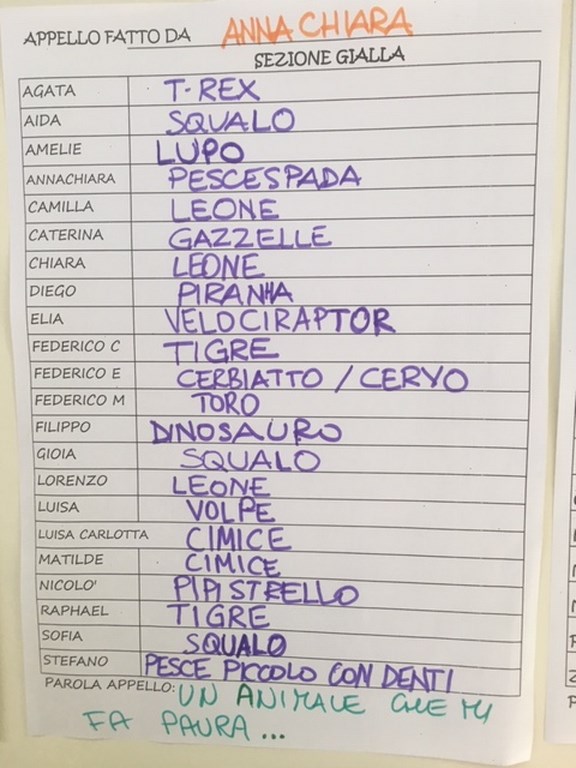 APPELLO FATTO DA ANNA CHIARA
SEZIONE GIALLA
AGATA T-REX
AIDA SQUALO
AMELIE LUPO
ANNACHIARA PESCESPADA
CAMILLA LEONE
CATERINA GAZZELLE
CHIARA LEONE
DIEGO PIRANHA
ELIA VELOCIRAPTOR
FEDERICO C TIGRE
FEDERICO E CERBIATTO / CERVO
FEDERICO M TORO
FILIPPO DINOSAURO
GIOIA SQUALO
LORENZO LEONE
LUISA VOLPE
LUISA CARLOTTA CIMICE
MATILDE CIMICE
NICOLO' PIPISTRELLO
RAPHAEL TIGRE
SOFIA SQUALO
STEFANO PESCE PICCOLO CON DENTI
PAROLA APPELLO: UN ANIMALE CHE MI
FA PAURA...